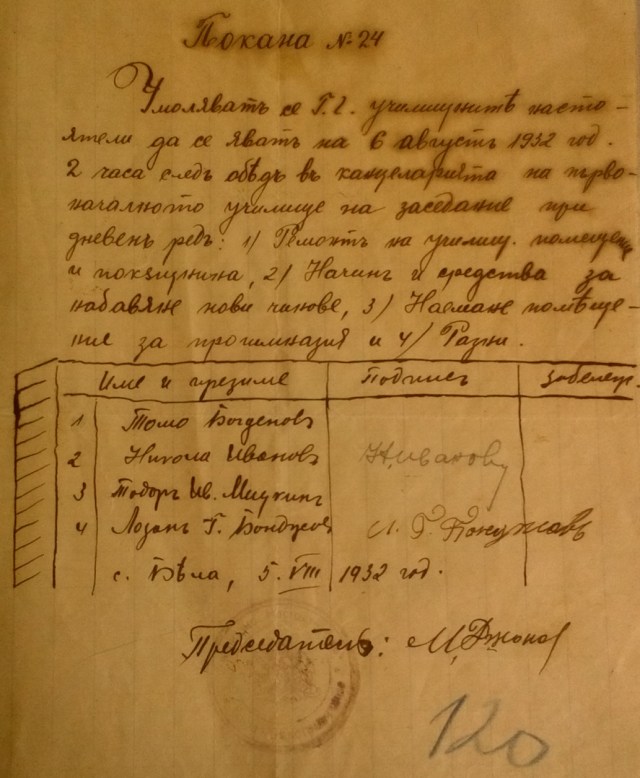 Покана № 24
Умоляватъ се Г. Г. училищнитѣ насто-
ятели да се явятъ на 6 августъ 1932 год.
2 часа следъ обѣдъ въ канцеларията на първо-
началното училище на заседание при
дневенъ редъ: 1) Ремонтъ на училищ. помещение
и покѫщнина, 2) Начинъ и средства за
набавяне нови чинове, 3) Наемане помѣще-
ние за прогимназия и 4) Разни.
Име и презиме Подписъ Забележ.
1 Томо Богдановъ
2 Никола Ивановъ Н. Ивановъ
3 Тодоръ Ив.
4 Лозанъ Г.
с. Бѣла, 5. VIII 1932 год.
Председатель: М.
120